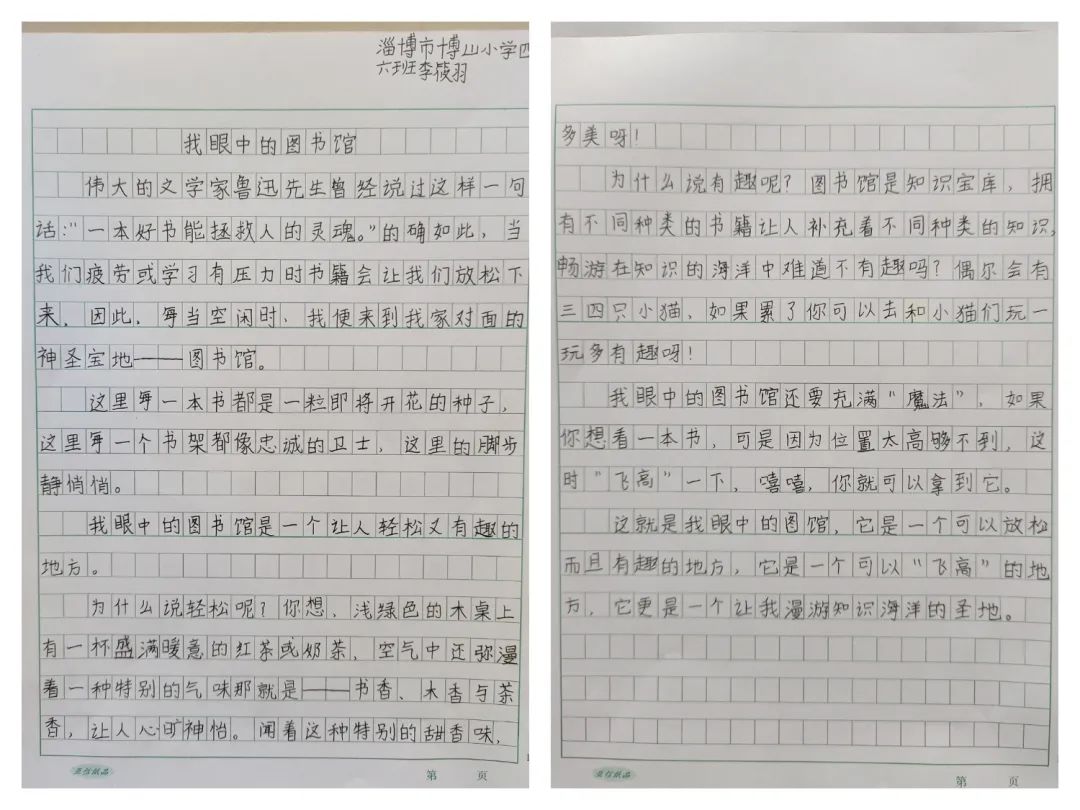 淄博市博山小学四
六班李筱羽
我眼中的图书馆
伟大的文学家鲁迅先生曾经说过这样一句
话:“一本好书能拯救人的灵魂。”的确如此，当
我们疲劳或学习有压力时书籍会让我们放松下
来，因此，每当空闲时，我便来到我家对面的
神圣宝地——图书馆。
这里每一本书都是一粒即将开花的种子，
这里每一个书架都像忠诚的卫士，这里的脚步
静悄悄。
我眼中的图书馆是一个让人轻松又有趣的
地方。
为什么说轻松呢？你想，浅绿色的木桌上
有一杯盛满暖意的红茶或奶茶，空气中还弥漫
着一种特别的气味那就是——书香、木香与茶
香，让人心旷神怡。闻着这种特别的甜香味，
亚信纸品
第 页
多美呀！
为什么说有趣呢？图书馆是知识宝库，拥
有不同种类的书籍让人补充着不同种类的知识，
畅游在知识的海洋中难道不有趣吗？偶尔会有
三四只小猫，如果累了你可以去和小猫们玩一
玩多有趣呀！
我眼中的图书馆还要充满“魔法”，如果
你想看一本书，可是因为位置太高够不到，这
时“飞高”一下，嘻嘻，你就可以拿到它。
这就是我眼中的图馆，它是一个可以放松
而且有趣的地方，它是一个可以“飞高”的地
方，它更是一个让我漫游知识海洋的圣地。
亚信纸品
第 页